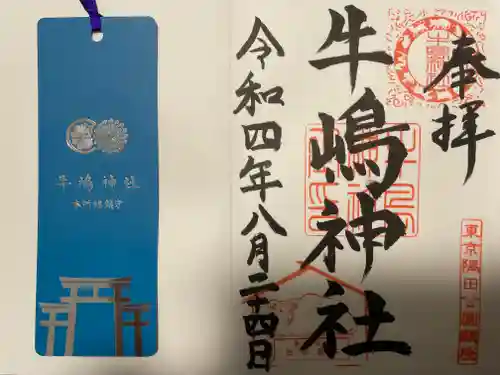 牛嶋神社
本所総鎮守
奉拝
牛嶋神社
令和四年八月二十四日